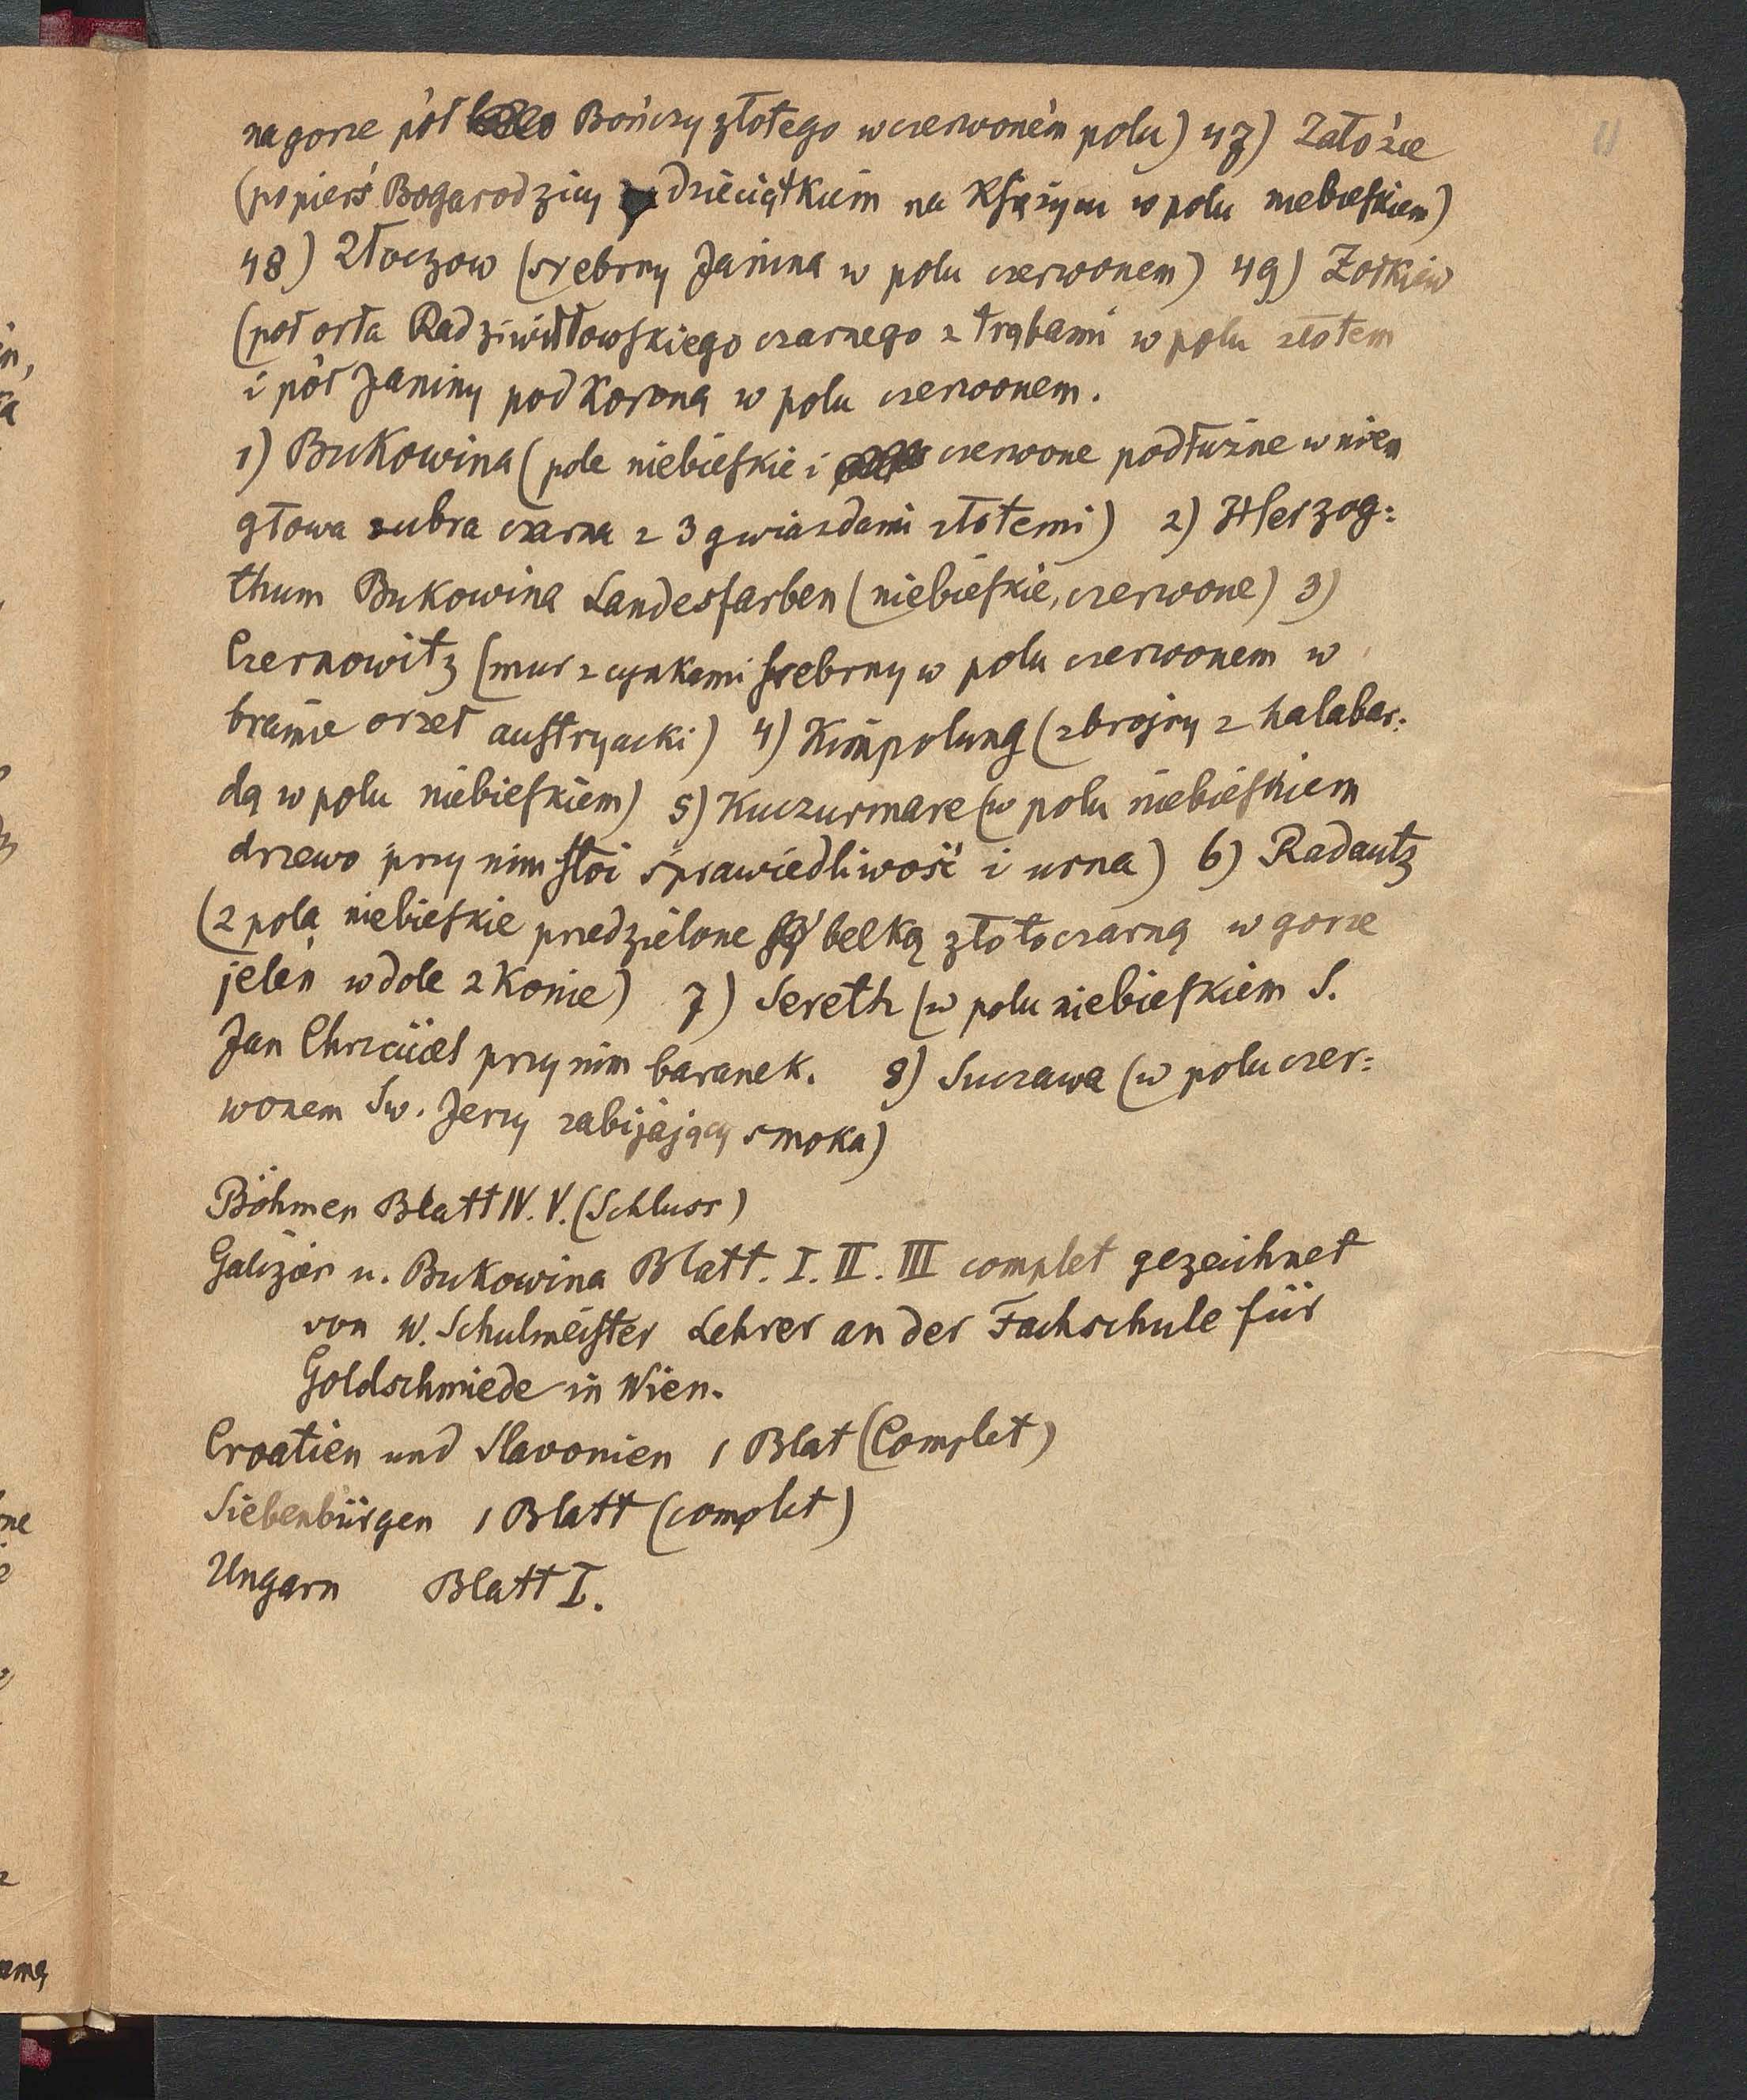 na gorze pół Bończy złotego w czerwoném polu) 47) Załoźce
(popierś Bogarodzicy dzieciątkiem na Księżycu w polu niebieskiem)
48) Złoczow (srebrny Janina w polu czerwonem) 49) Żołkiew
(poł orła Radziwiłłowskiego czarnego z trąbami w polu złotem
i pół Janiny pod Koroną w polu czerwonem.
1) Bukowina (pole niebieskie i czerwone podłużne w niem
głowa zubra czarna z 3 gwiazdami złotemi) 2) Herzog:
thum Bukowina Landesfarben (niebieskie, czerwone) 3)
Czernowitz (mur z cynkami srebrny w polu czerwonem w
bramie orzeł austryacki) 4) Kimpolung (zbrojny z halabar:
dą w polu niebieskiem) 5) Kuczurmare (w polu niebieskiem
drzewo przy nim stoi sprawiedliwość i urna) 6) Radautz
(2 pola niebieskie przedzielone belką złotoczarną w gorze
jeleń w dole 2 Konie) 7) Sereth (w polu niebieskiem S.
Jan Chrzciciel przy nim baranek. 8) Suczawa (w polu czer:
wonem Sw. Jerzy zabijający smoka)
Böhmen Blatt IV. V. (Schluss)
Galizien u. Bukowina Blatt. I. II. III complet gezeichnet
von W. Schulmeister Lehrer an der Fachschule für
Goldschmiede in Wien.
Croatien und Slavonien 1 Blat (Complet)
Siebenbürgen 1 Blatt (complet)
Ungarn Blatt I.